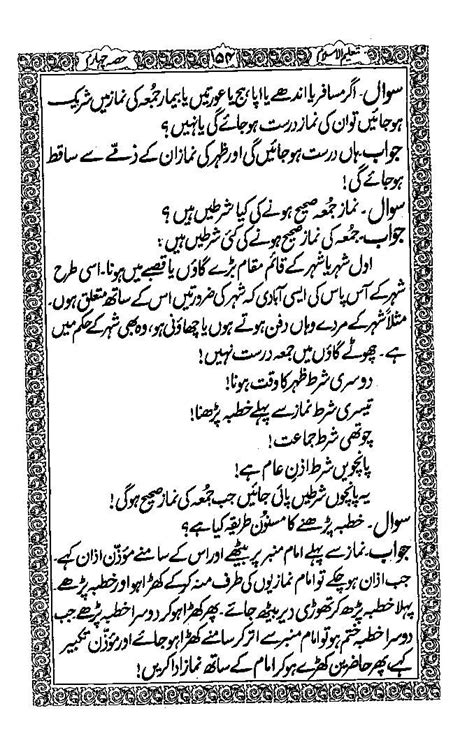 تعلیم الاسلام ۱۵۴ حصہ چہارم
سوال۔ اگر مسافر یا اندھے یا اپاہج یا عورتیں یا بیمار جُمعہ کی نماز میں شریک
ہوجائیں تو ان کی نماز درست ہوجائے گی یا نہیں؟
جواب۔ ہاں درست ہوجائیں گی اور ظہر کی نماز ان کے ذمّے سے ساقط
ہوجائے گی!
سوال۔ نماز جُمعہ صحیح ہونے کی کیا شرطیں ہیں؟
جواب۔ جُمعہ کی نماز صحیح ہونے کی کئی شرطیں ہیں:
اول شہر یا شہر کے قائم مقام بڑے گاؤں یا قصبے میں ہونا۔ اسی طرح
شہر کے آس پاس کی ایسی آبادی کہ شہر کی ضرورتیں اس کے ساتھ متعلق ہوں۔
مثلاً شہر کے مردے وہاں دفن ہوتے ہوں یا چھاؤنی ہو، وہ بھی شہر کے حکم میں
ہے۔ چھوٹے گاؤں میں جمعہ درست نہیں!
دوسری شرط ظہر کا وقت ہونا!
تیسری شرط نماز سے پہلے خطبہ پڑھنا!
چوتھی شرط جماعت!
پانچویں شرط اذنِ عام ہے!
یہ پانچوں شرطیں پائی جائیں جب جُمعہ کی نماز صحیح ہوگی!
سوال۔ خطبہ پڑھنے کا مسنون طریقہ کیا ہے؟
جواب۔ نماز سے پہلے امام منبر پر بیٹھے اور اس کے سامنے مؤذّن اذان کہے۔
جب اذان ہوچکے تو امام نمازیوں کی طرف منہ کرکے کھڑا ہو اور خطبہ پڑھے۔
پہلا خطبہ پڑھ کر تھوڑی دیر بیٹھ جائے۔ پھر کھڑا ہوکر دوسرا خطبہ پڑھے جب
دوسرا خطبہ ختم ہو تو امام منبر سے اتر کر سامنے کھڑا ہوجائے اور مؤذّن تکبیر
کہے پھر حاضرین کھڑے ہوکر امام کے ساتھ نماز ادا کریں!